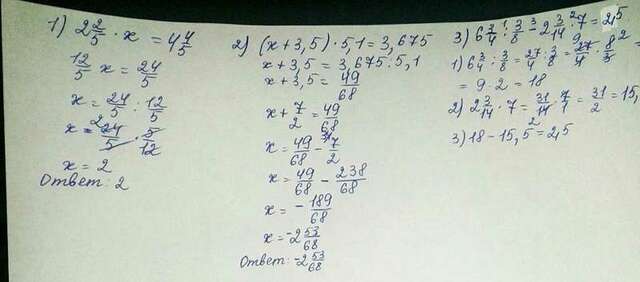 1) 2 2/5 · x = 4 4/5
12/5 x = 24/5
x = 24/5 : 12/5
x = 24/5 · 5/12
x = 2
Ответ: 2
2) (x + 3,5) · 5,1 = 3,675
x + 3,5 = 3,675 : 5,1
x + 3,5 = 49/68
x + 7/2 = 49/68
x = 49/68 - 7/2
x = 49/68 - 238/68
x = - 189/68
x = -2 53/68
Ответ: -2 53/68
3) 6 3/4 : 3/8 - 2 3/14 · 7 = 2,5
1) 6 3/4 : 3/8 = 27/4 : 3/8 = 27/4 · 8/3 =
= 9 · 2 = 18
2) 2 3/14 · 7 = 31/14 · 7/1 = 31/2 = 15,
3) 18 - 15,5 = 2,5